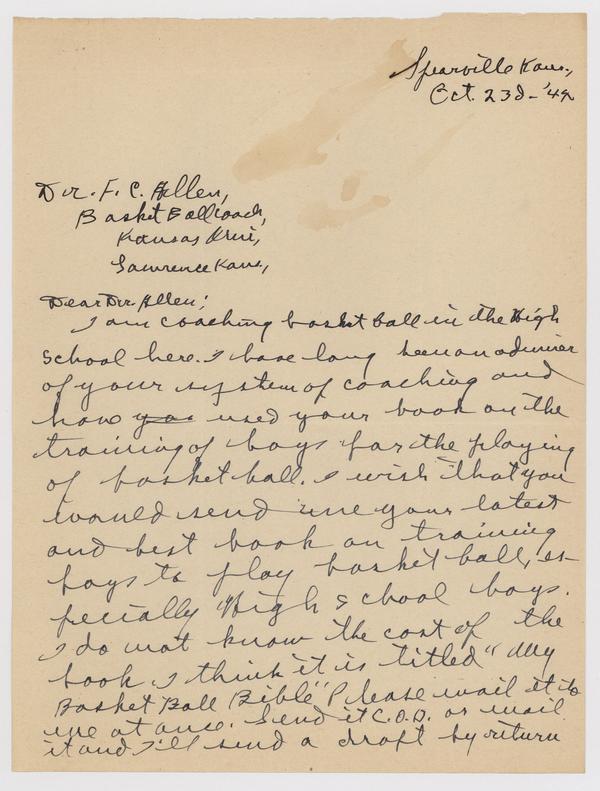 Spearville Kans.,
Oct. 23d - '42
Dr. F. C. Allen,
Basket Ball coach,
Kansas Univ,
Lawrence Kans.,
Dear Dr. Allen;
I am coaching basket ball in the High
School here. I have long been an admirer
of your system of coaching and
have you used your book on the
training of boys for the playing
of basket ball. I wish that you
would send me your latest
and best book on training
boys to play basket ball, es-
pecially High School boys.
I do not know the cost of the
book. I think it is titled "My
Basket Ball Bible" Please mail it to
me at once. Send it C.O.D. or mail
it and I'll send a draft by return